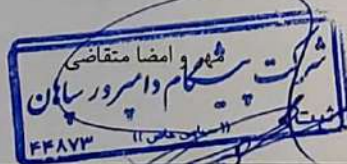 مهر و امضا متقاضی
شرکت پیشگام دامپرور سپاهان
(( سهامی خاص ))
ثبت
۴۴۸۷۳